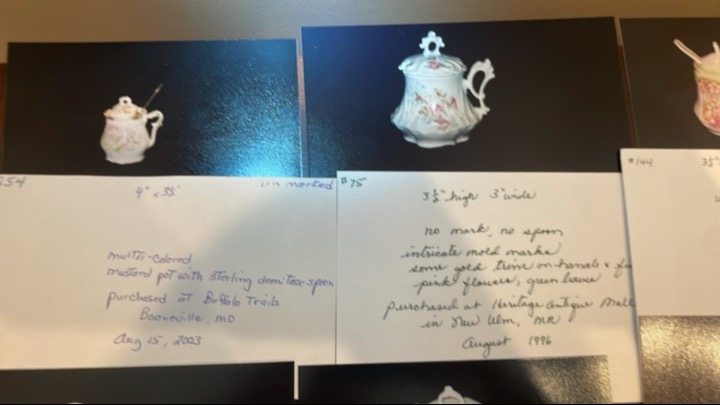 254
4" x 3½"
unmarked
multi-colored
mustard pot with sterling demitasse spoon
purchased at Buffalo Trails
Booneville, MO
Aug 15, 2003
#75
3½" high 3" wide
no mark, no spoon
intricate mold marks
some gold trim on handle &
pink flowers, green leaves
purchased at Heritage Antique Mall
in New Ulm, MN
August 1996
#144